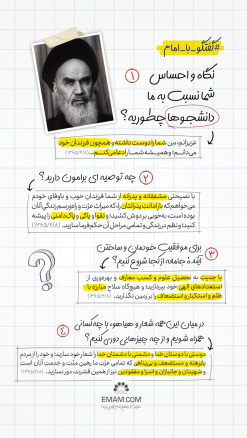 #گفتگو_با_امام
۱ نگاه و احساس
شما نسبت به ما
دانشجوها چطوریه؟
عزیزانم، من شما را دوست داشته و همچون فرزندان خود
می‌دانم و همیشه شما را دعا می‌کنم...
۲ چه توصیه ای برامون دارید؟
با نصیحتی مشفقانه و پدرانه از شما فرزندان خوب و باوفای خودم
می‌خواهم که
بوده است، به‌خوبی بر دوش کشید و تقوا و پاکی و پاکدامنی را پیشه
کنید و نظم در زندگی و تمامی مراحل آن حکم‌فرما سازید.
۳ برای موفقیت خودمان و ساختن
آینده جامعه از کجا شروع کنیم؟
با جدیت به تحصیل علوم و کسب معارف و بهره‌وری از
استعدادهای الهی خود بپردازید و هیچ‌گاه سلاح مبارزه با
ظلم و استکبار و استضعاف را بر زمین نگذارید.
۴ در میان این همه شعار و هیاهو، با چه کسانی
همراه شویم و از چه چیزهایی دوری کنیم؟
دوستی با دوستان خدا و دشمنی با دشمنان خدا را شعار خود سازید و خود را از مردم
پابرهنه و مستضعف و بی‌پناهی که تمامی عزت ما رهین منت و خدمت آنان است
و شهیدان و جانبازان و اسرا و مفقودین نیز از همین قشرند، دور نسازید.
EMAM.COM